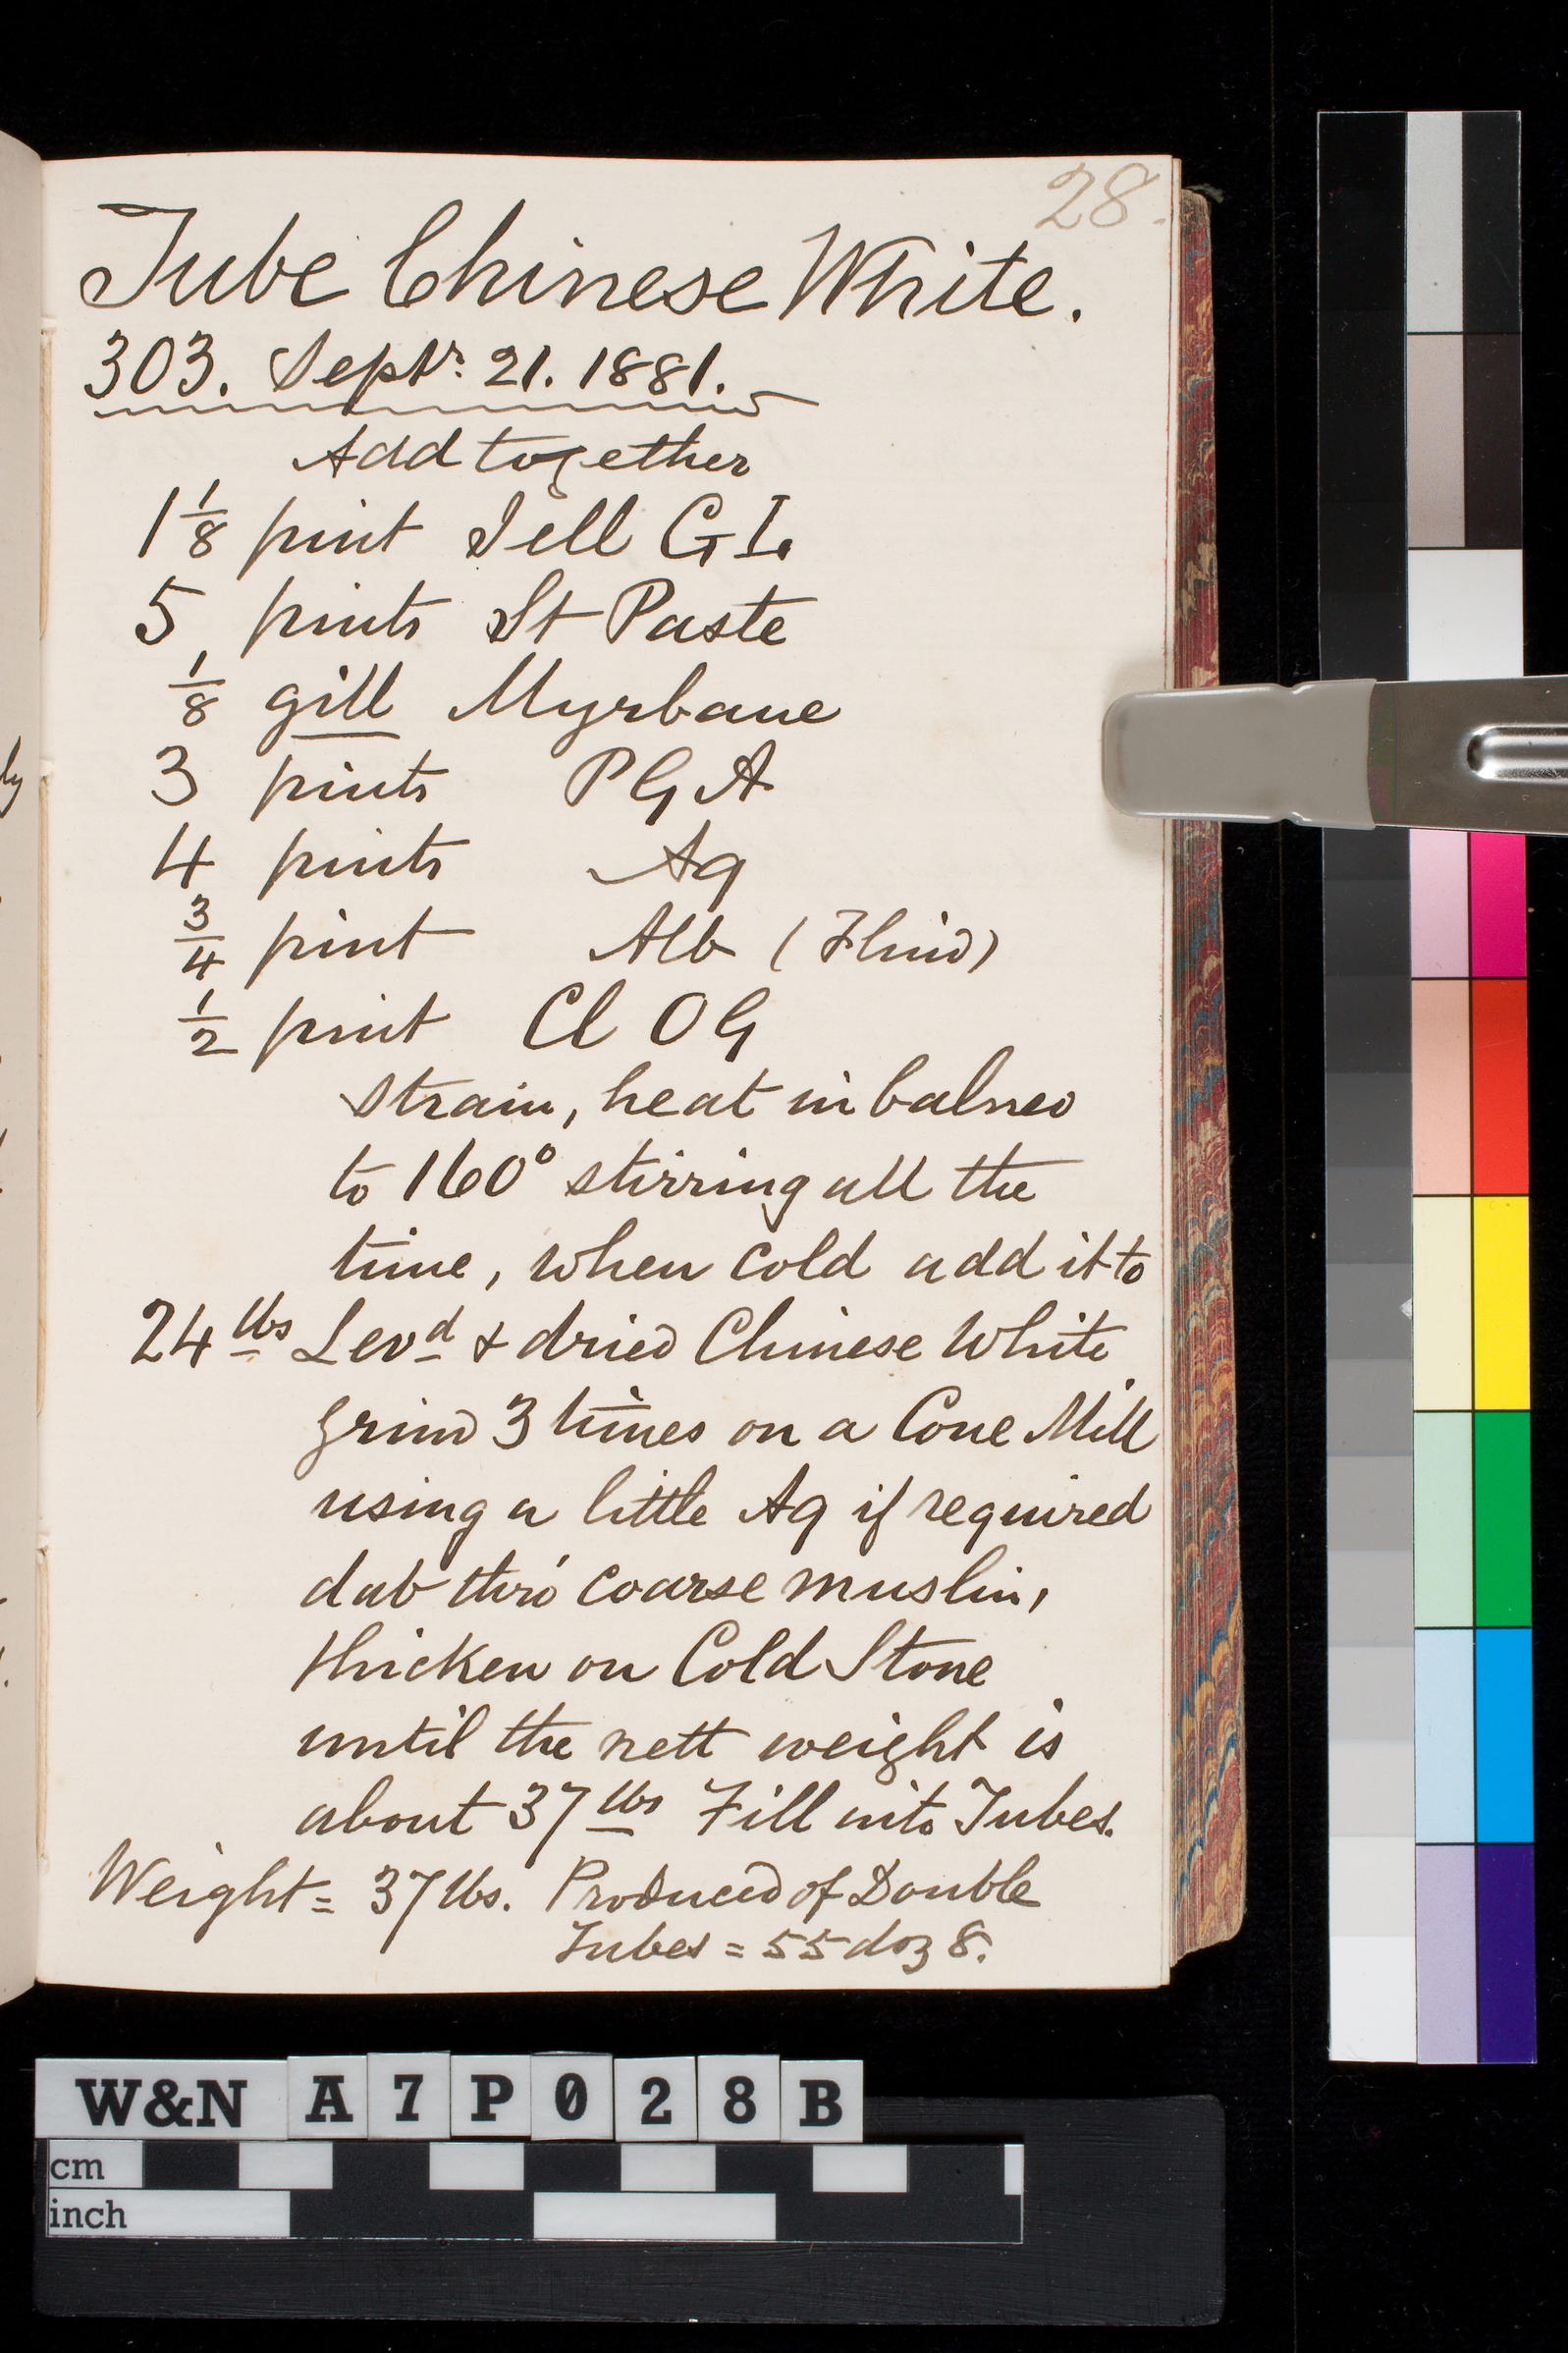 28.
Tube Chinese White.
303. Septr. 21. 1881.
Add together
1 1/8 pint Jell G I.
5 pints St Paste
1/8 gill Myrbane
3 pints P G A
4 pints Aq
3/4 pint Alb (Fluid)
1/2 pint Cl O G
Strain, heat in balneo
to 160° stirring all the
time, when cold add it to
24 lbs Levd & dried Chinese White
grind 3 times on a Cone Mill
using a little Aq if required
dab thro' coarse muslin,
thicken on Cold Stone
until the nett weight is
about 37 lbs Fill into Tubes.
Weight = 37 lbs. Produced of Double
Tubes = 55 doz 8.
ly
W&N A 7 P 0 2 8 B
cm
inch